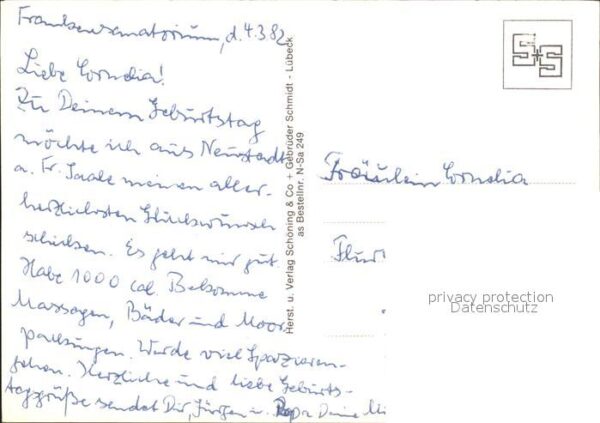 Frankensanatorium, d. 4.3.82
Liebe Cornelia!
Zu Deinem Geburtstag
möchte ich aus Neustadt
a. Fr. Saale meinen aller-
herzlichsten Glückwunsch
schicken. Es geht mir gut.
Habe 1000 cal. Bekomme
Massagen, Bäder und Moor
packungen. Werde viel Spazieren-
gehen. Herzliche und liebe Geburts-
tagsgrüße sendet Dir, Jürgen u. Papa Deine
Herst. u. Verlag Schöning & Co + Gebrüder Schmidt - Lübeck
as Bestellnr. N-Sa 249
S+S
Fräulein Cornelia
Flur
privacy protection
Datenschutz